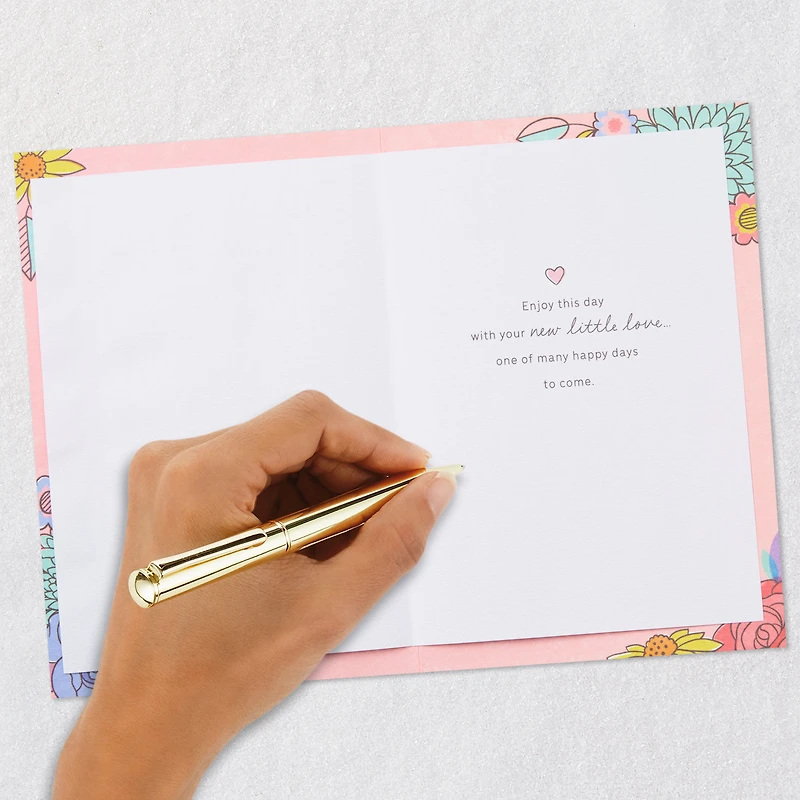 Enjoy this day
with your new little love...
one of many happy days
to come.